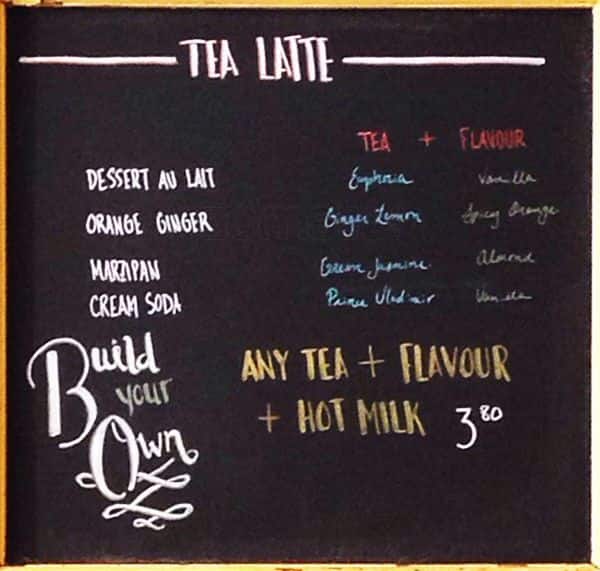 TEA LATTE
TEA + FLAVOUR
DESSERT AU LAIT Euphoria Vanilla
ORANGE GINGER Ginger Lemon Spicy Orange
MARZIPAN Green Jasmine Almond
CREAM SODA Prince Vladimir Vanilla
Build your Own
ANY TEA + FLAVOUR
+ HOT MILK 3 80